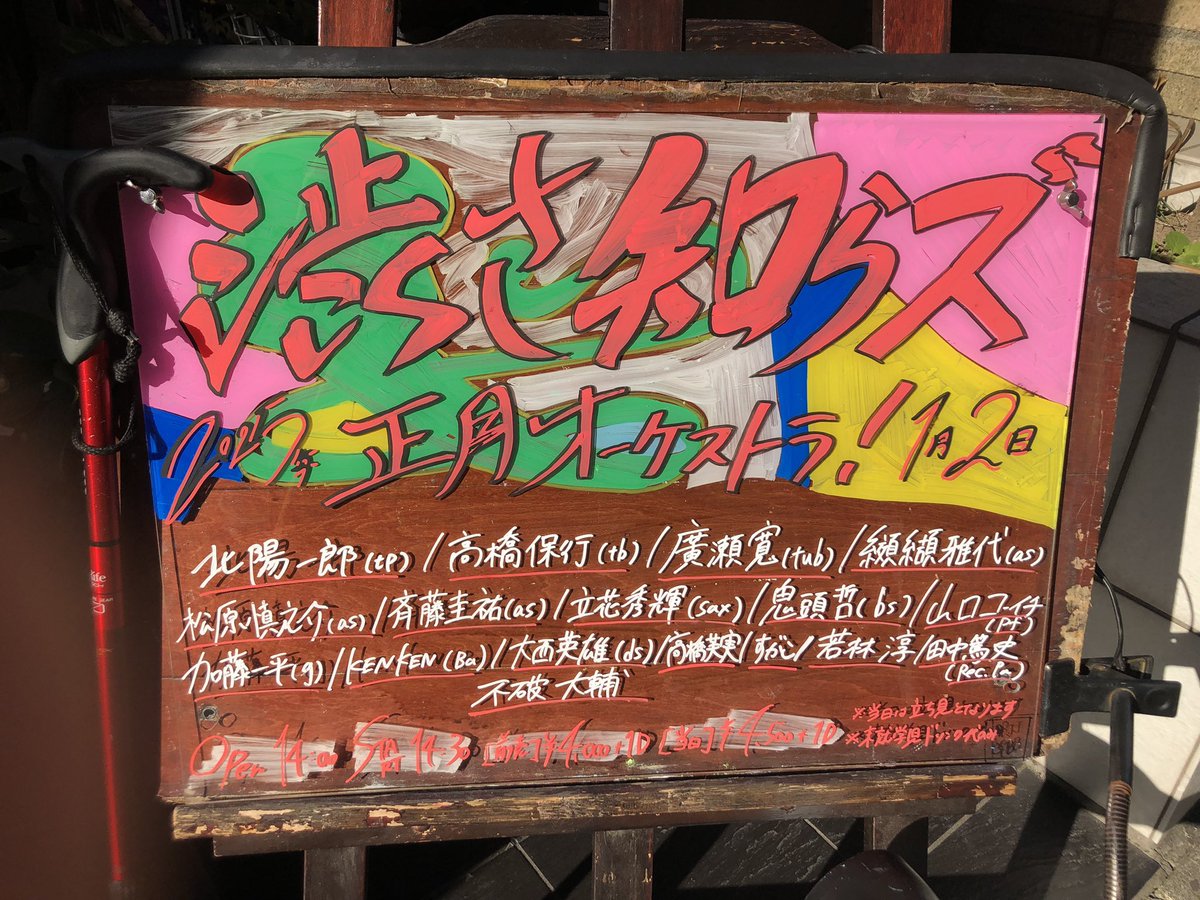 渋さ知らズ
正月オーケストラ！1月2日
北陽一郎(tp)/高橋保行(tb)/廣瀬寛(tub)/纐纈雅代(as)
松原慎之介(as)/斉藤圭祐(as)/立花秀輝(sax)/鬼頭哲(bs)/山口コーイチ(Pf)
加藤一平(g)/KenKen(Ba)/大西英雄(ds)/高橋美実/すがし/若林淳/田中篤史(Rec.Pa)
不破大輔
※当日は立ち見となります
Open 14:00 Start 14:30 [前売]¥4,000+1D [当日]¥4,500+1D ※未就学児ドリンク代のみ